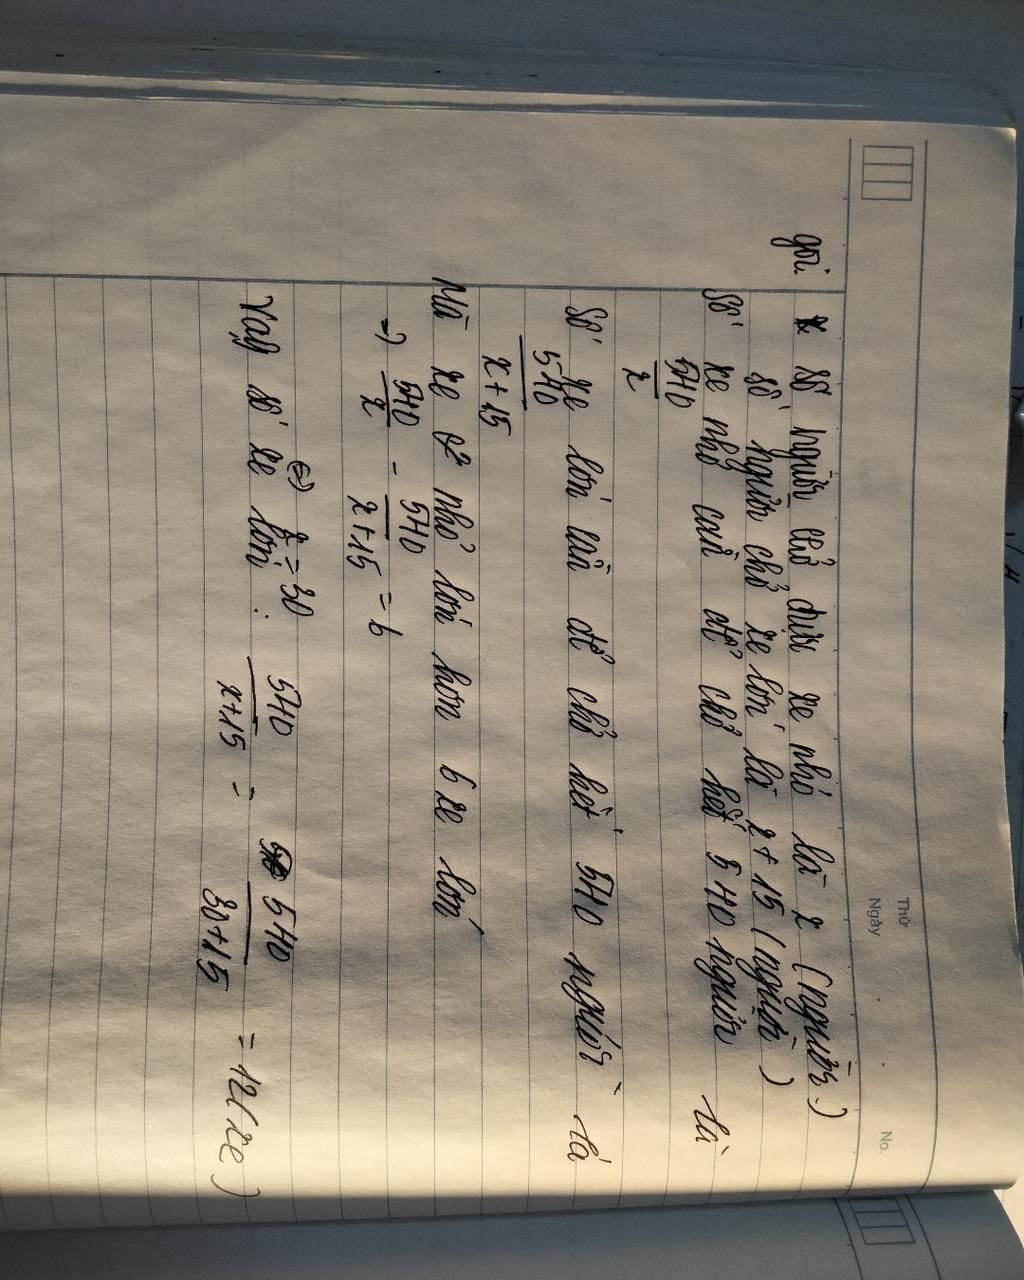 Thứ
Ngày
No.
gọi x số người chở được xe nhỏ là x (người)
số người chở xe lớn là x + 15 (người)
số xe nhỏ cần để chở hết 540 người là
540
x
số xe lớn cần để chở hết 540 người là
540
x + 15
Mà xe nhỏ lớn hơn 6 xe lớn
=> 540/x - 540/x+15 = 6
(=) x = 30
Vậy số xe lớn: 540/x+15 = 540/30+15 = 12 (xe)